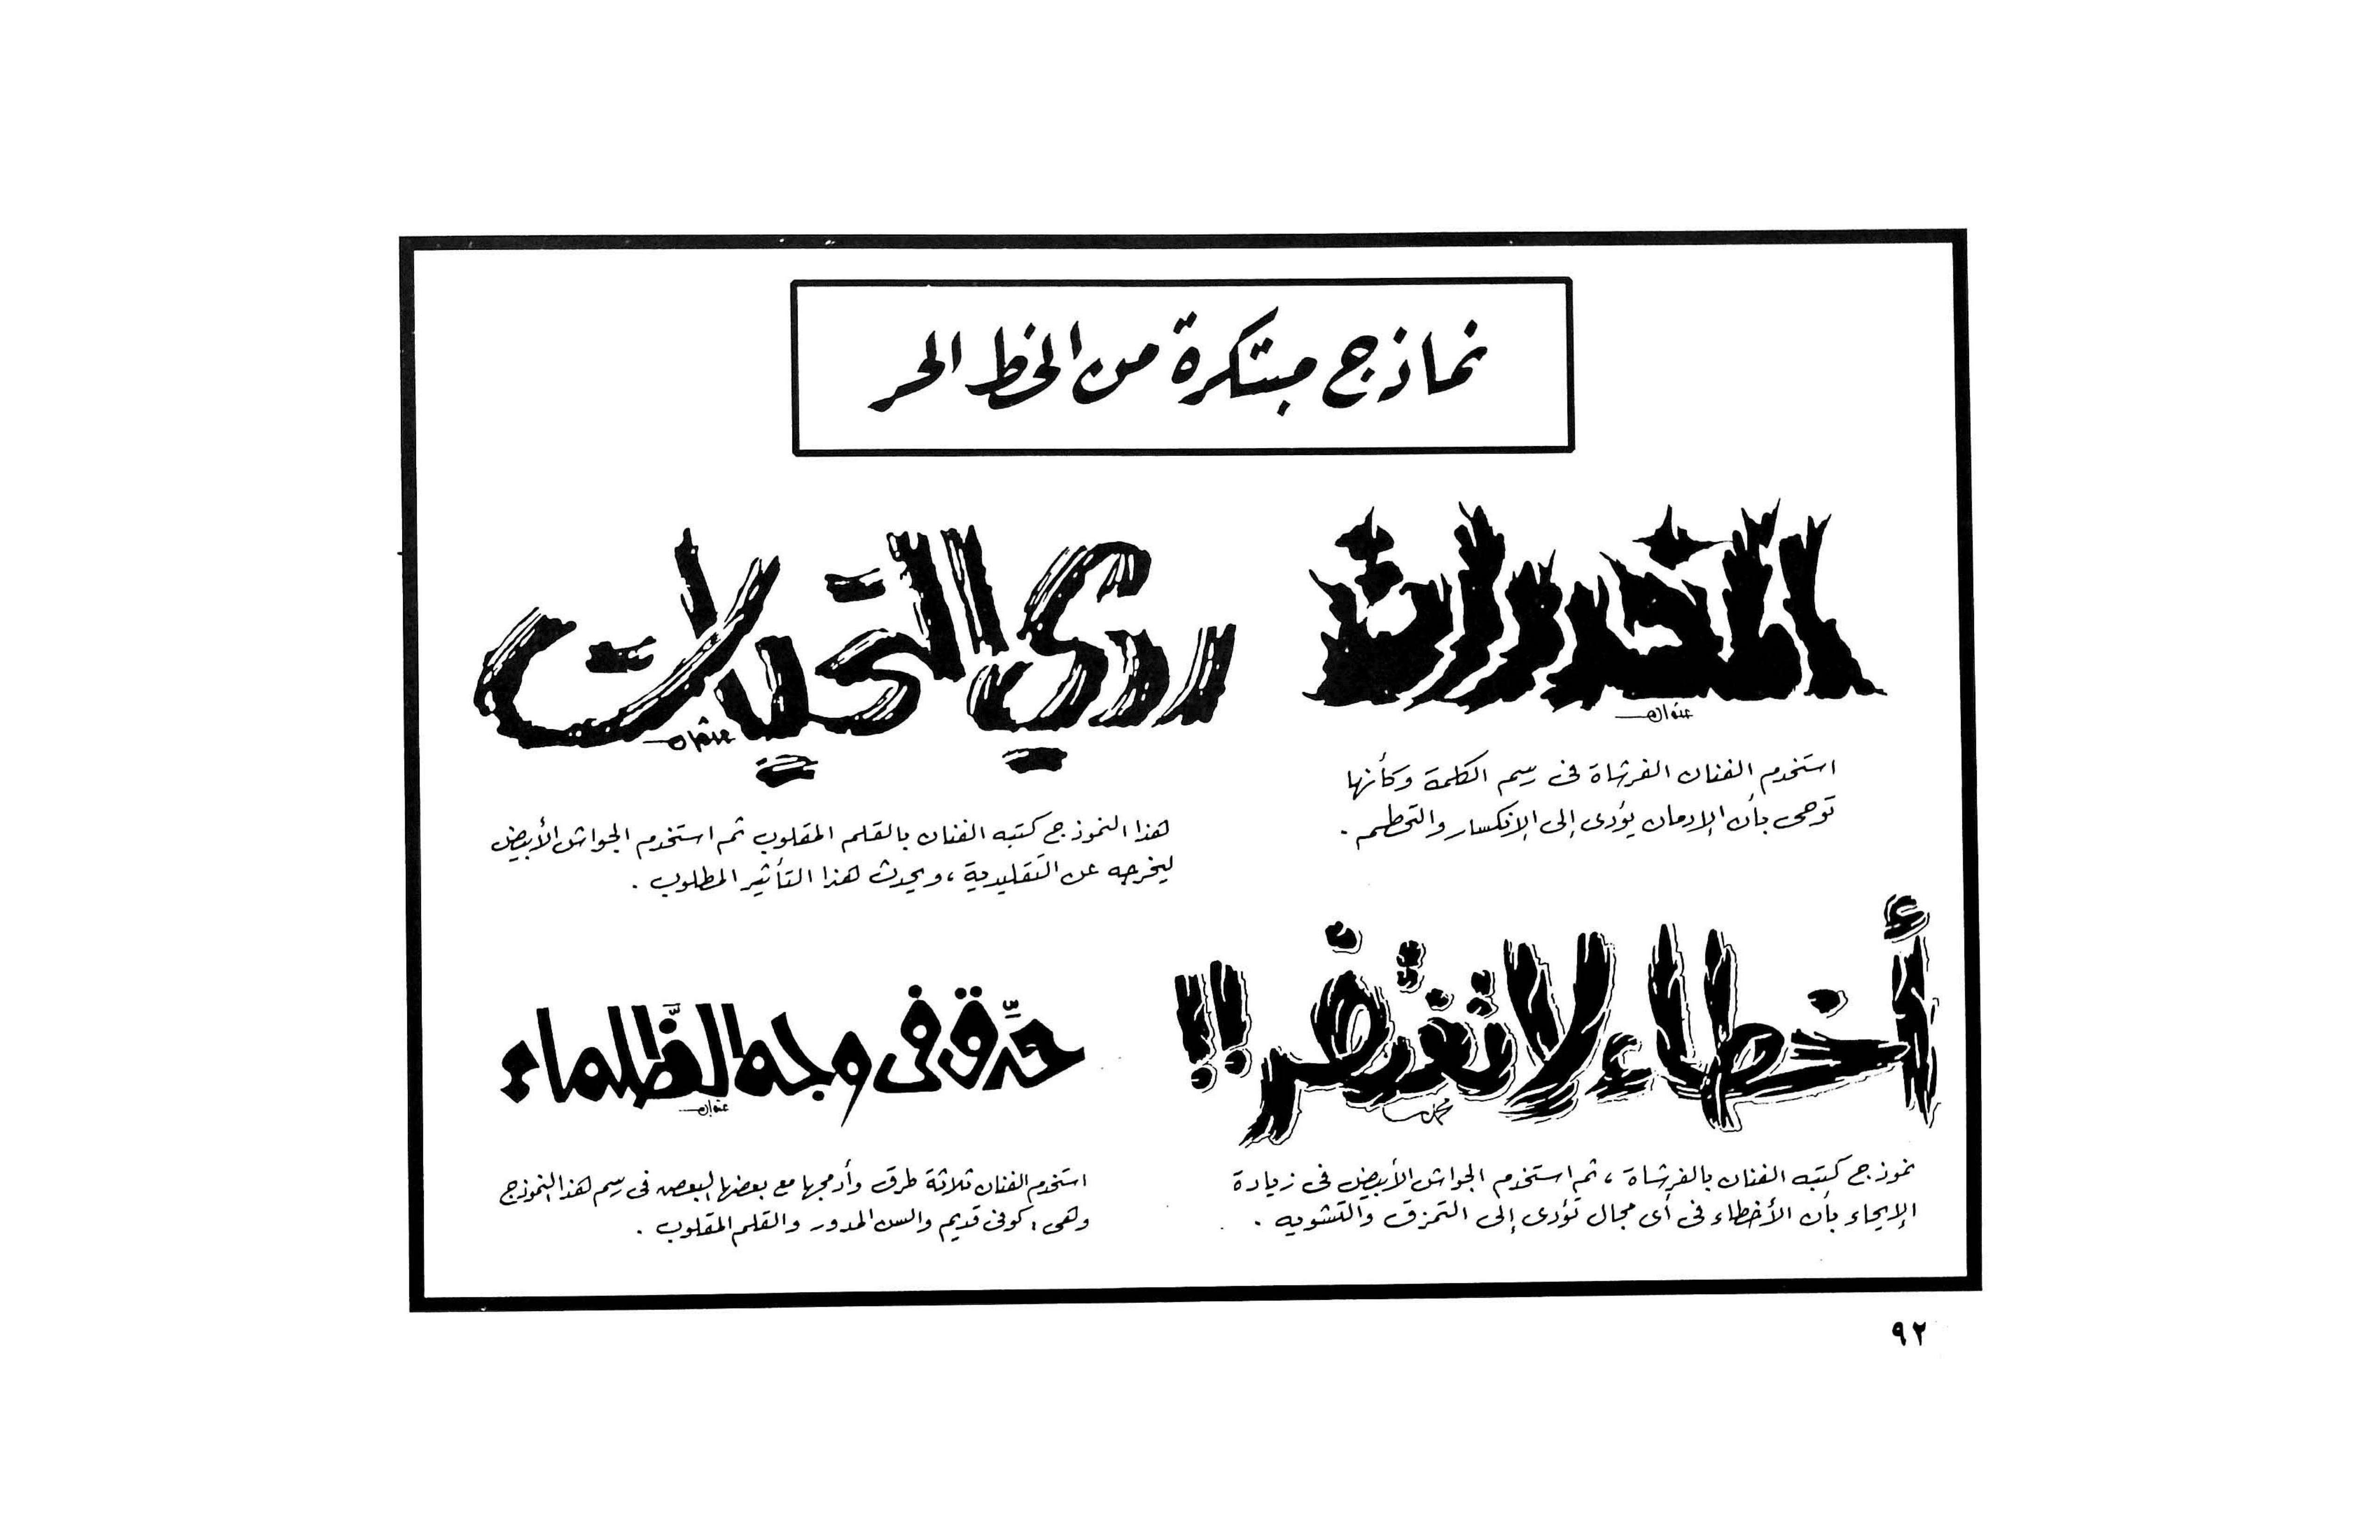 نماذج مبتكرة من الخط الحر
المخدرات
عثمان
استخدم الفنان الفرشاة فى رسم الكلمة وكأنها
توحى بأن الإدمان يؤدى إلى الإنكسار والتحطم .
ردي التحيات
عثمان
هذا النموذج كتبه الفنان بالقلم المقلوب ثم استخدم الجواش الأبيض
ليخرجه عن التقليدية ، ويحدث هذا التأثير المطلوب .
أخطاء لا تغتفر!!
نموذج كتبه الفنان بالفرشاة ، ثم استخدم الجواش الأبيض فى زيادة
الإيحاء بأن الأخطاء فى أى مجال تؤدى إلى التمزق والتشويه .
حدِّق فى وجه الظَّلماء
عثمان
استخدم الفنان ثلاثة طرق وأدمجها مع بعضها البعض فى رسم هذا النموذج
وهى : كوفى قديم والسن المدور والقلم المقلوب .
٩٢